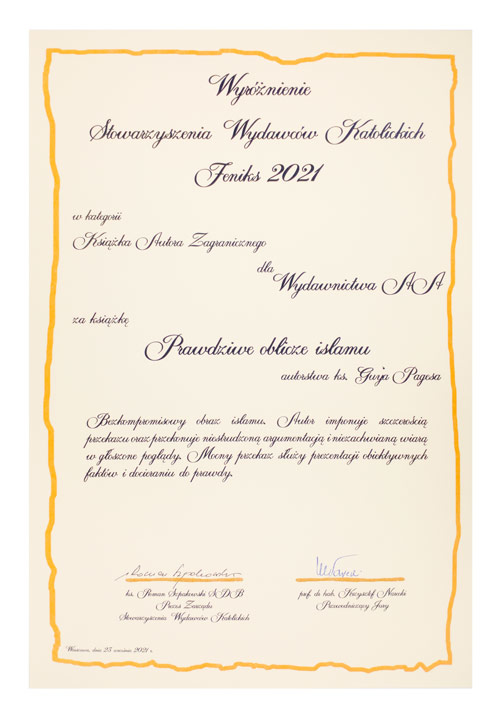 Wyróżnienie
Stowarzyszenia Wydawców Katolickich
Feniks 2021
w kategorii
Książka Autora Zagranicznego
dla
Wydawnictwa AA
za książkę
Prawdziwe oblicze islamu
autorstwa ks. Guy'a Pagesa
Bezkompromisowy obraz islamu. Autor imponuje szczerością
przekazu oraz przekonuje niestrudzoną argumentacją i niezachwianą wiarą
w głoszone poglądy. Mocny przekaz służy prezentacji obiektywnych
faktów i docieraniu do prawdy.
ks. Roman Szpakowski SDB
Prezes Zarządu
Stowarzyszenia Wydawców Katolickich
prof. dr hab. Krzysztof Narecki
Przewodniczący Jury
Warszawa, dnia 25 września 2021 r.